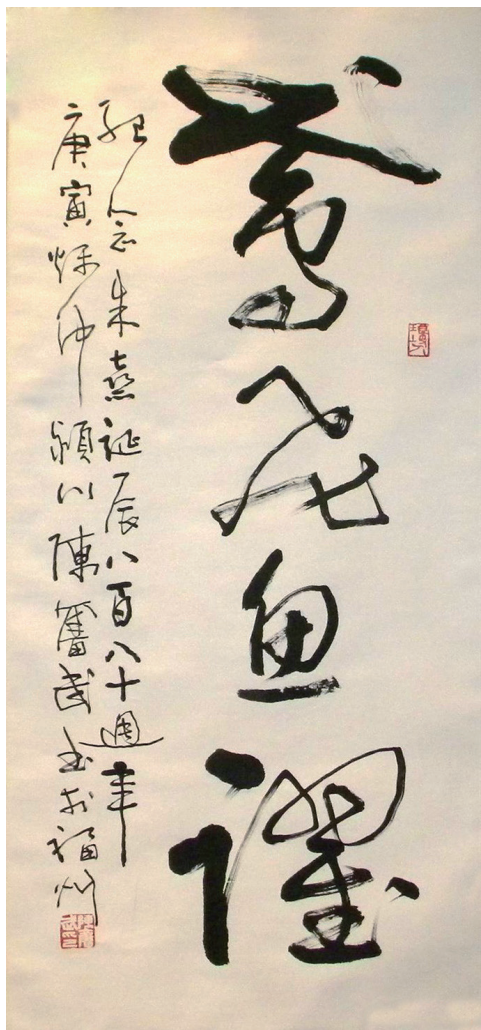 鳶飛魚躍
紀念朱熹誕辰八百八十週年
庚寅秋仲潁川陳奮武書於福州